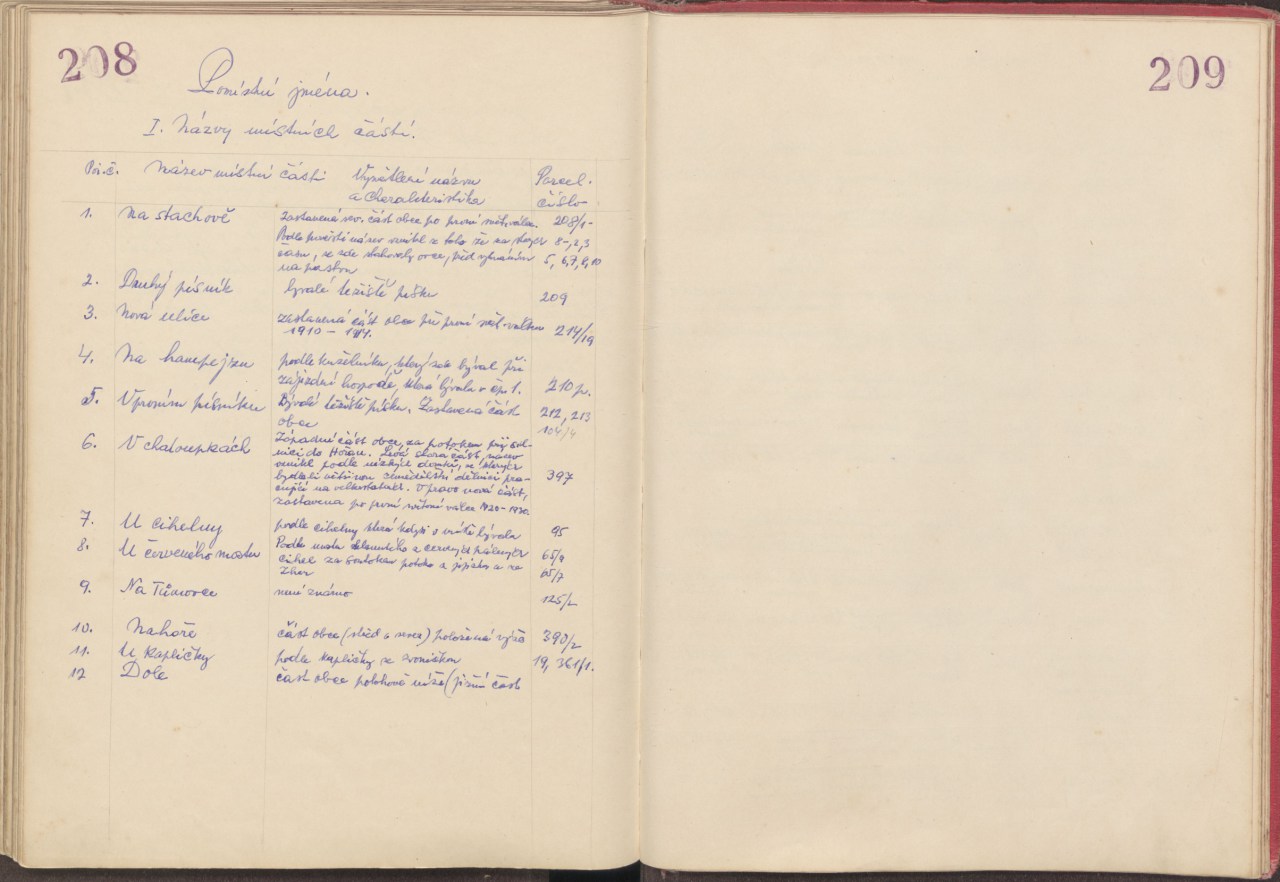 208
Pomístní jména.
I. Názvy místních částí.
Poř.č. Název místní části Vysvětlení názvu a charakteristika Parcel. číslo
1. Na stachově Zastavená sev. část obce po první svět. válce. 208/1-
Podle pověsti název vznikl z toho že za 8-, 2, 3
času, se zde stahovaly ovce, před vyháněním 5, 6, 7, 8, 10
na pastvu
2. Druhý písník bývalé težiště písku 209
3. Nová ulice zastavená část obce při první svět. válkou 214/19
1910 - 1914.
4. Na hampejzu podle kuželníku, který zde býval při
zájezdní hospodě, která bývala v čp. 1. 210 p.
5. V prvním písníku Bývalé težiště písku. Zastavená část 212, 213
obce 104/4
6. V chaloupkách Západní část obce, za potokem při sil-
nici do Hořan. Levá stará část, název
vznikl podle nízkých domků, ve kterých
bydleli většinou zemědělští dělníci pra- 397
cující na velkostatcích. Vpravo nová část,
zastavena po první světové válce 1920-1930.
7. U cihelny podle cihelny která kdysi v místě bývala 95
8. U červeného mostu Podle mostu klenutého z červených pálených 65/9
cihel za potoka a 65/7
9. Na Tůmovce není známo 125/2
10. Nahoře část obce (střed a sever) položená výše 390/2
11. U kapličky podle kapličky se zvoničkou 19, 361/1.
12 Dole část obce polohově níže (jižní část
209